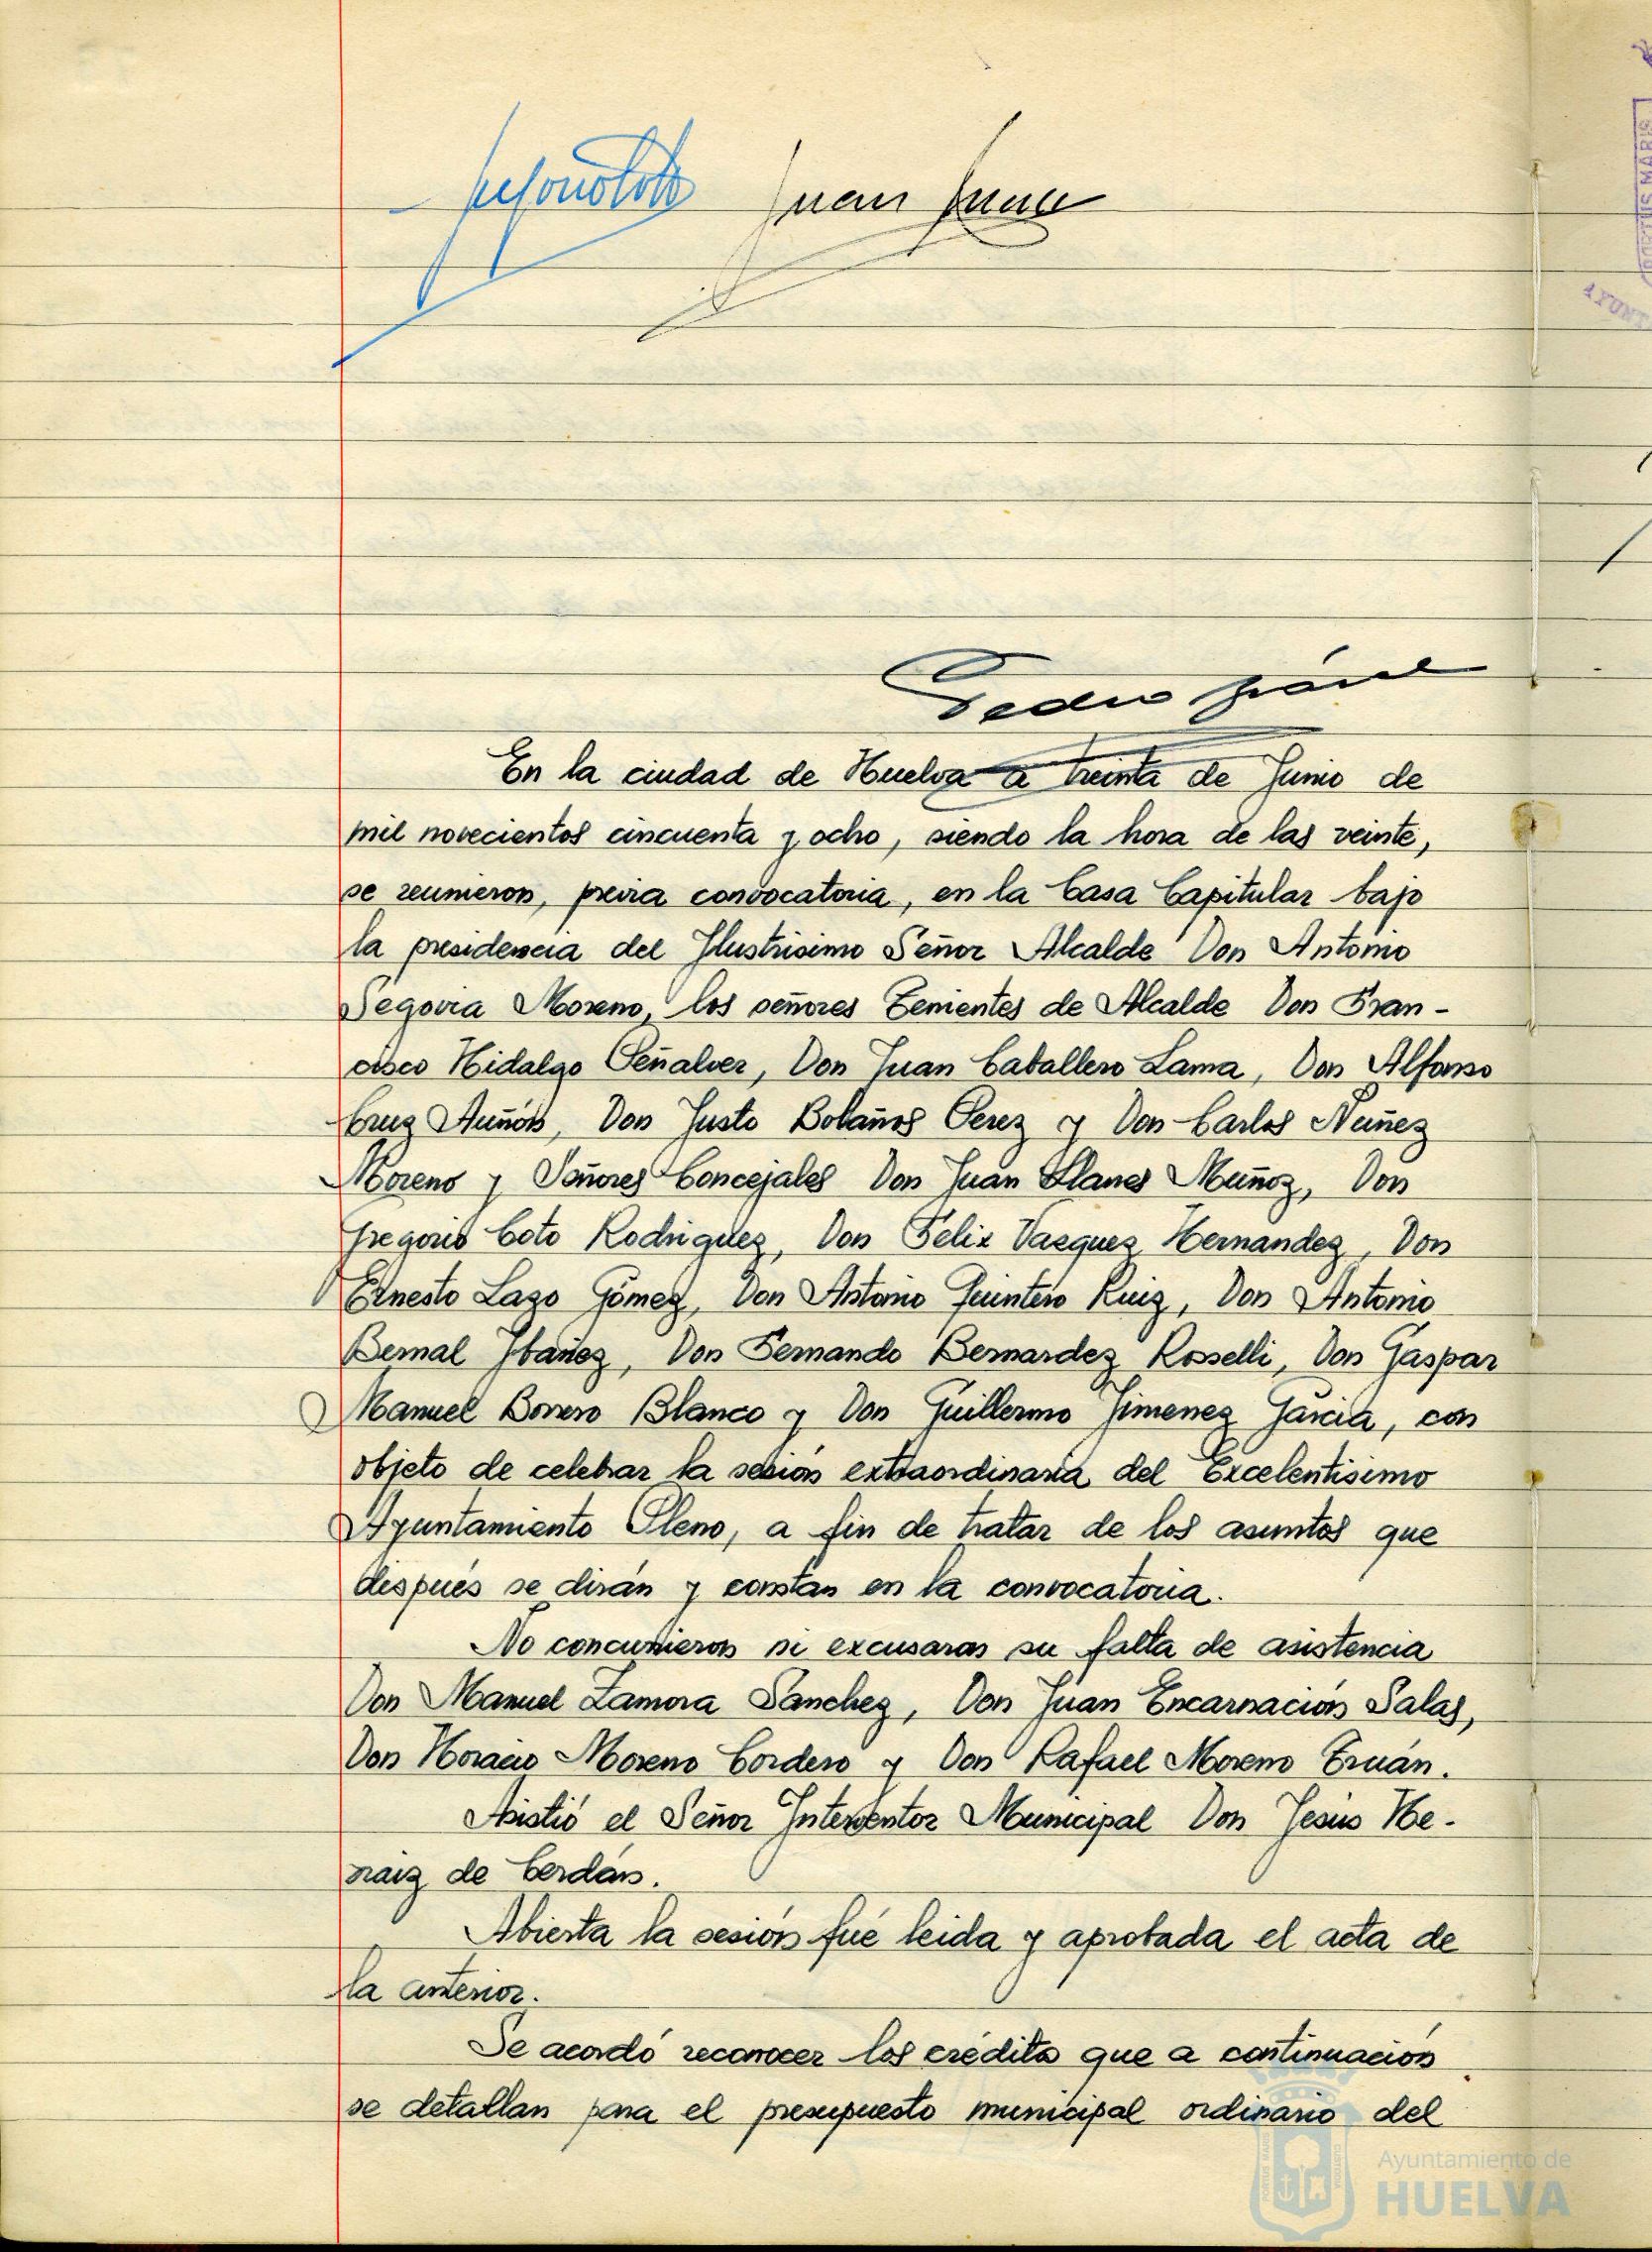 Juan
Pedro
En la ciudad de Huelva a treinta de Junio de
mil novecientos cincuenta y ocho, siendo la hora de las veinte,
se reunieron, previa convocatoria, en la Casa Capitular bajo
la presidencia del Ilustrisimo Señor Alcalde Don Antonio
Segovia Moreno, los señores Tenientes de Alcalde Don Fran-
cisco Hidalgo Peñalver, Don Juan Caballero Lama, Don Alfonso
Cruz Auñón, Don Justo Bolaños Perez y Don Carlos Nuñez
Moreno y Señores Concejales Don Juan Llanes Muñoz, Don
Gregorio Coto Rodriguez, Don Felix Vazquez Hernandez, Don
Ernesto Lazo Gómez, Don Antonio Quintero Ruiz, Don Antonio
Bernal Ibañez, Don Fernando Bernardez Rosselli, Don Gaspar
Manuel Borrero Blanco y Don Guillermo Jimenez Garcia, con
objeto de celebrar la sesión extraordinaria del Excelentisimo
Ayuntamiento Pleno, a fin de tratar de los asuntos que
después se dirán y constan en la convocatoria.
No concurrieron ni excusaron su falta de asistencia
Don Manuel Zamora Sanchez, Don Juan Encarnación Salas,
Don Horacio Moreno Cordero y Don Rafael Moreno Eruán.
Asistió el Señor Interventor Municipal Don Jesús He-
raiz de Cerdán.
Abierta la sesión fué leida y aprobada el acta de
la anterior.
Se acordó reconocer los crédito que a continuación
se detallan para el presupuesto municipal ordinario del
Ayuntamiento de
HUELVA